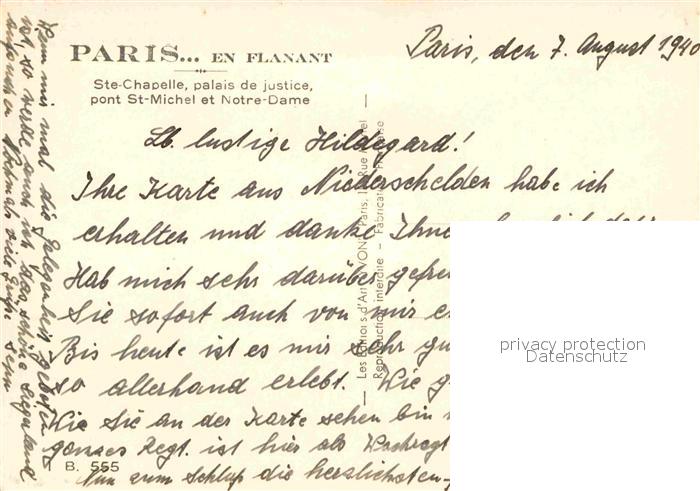 PARIS... EN FLANANT
Ste-Chapelle, palais de justice,
pont St-Michel et Notre-Dame
Paris, den 7. August 1940
Lb. lustige Hildegard!
Ihre Karte aus Niederschelden habe ich
erhalten und danke Ihnen
Hab mich sehr darüber gefreu
Sie sofort auch von mir
Bis heute ist es mir sehr gu
so allerhand erlebt. Wie
Wie Sie an der Karte sehen bin
ganzes Regt. ist hier als Wachregt
Nun zum Schluß die herzlichsten
B. 555
Wenn mir mal die Gelegenheit geboten
ist, so werde auch ich das schöne Siegerland
Nochmals viele
Les Editions d'Art YVON, Paris, Rue
Reproduction interdite - Fabrication Française
privacy protection
Datenschutz